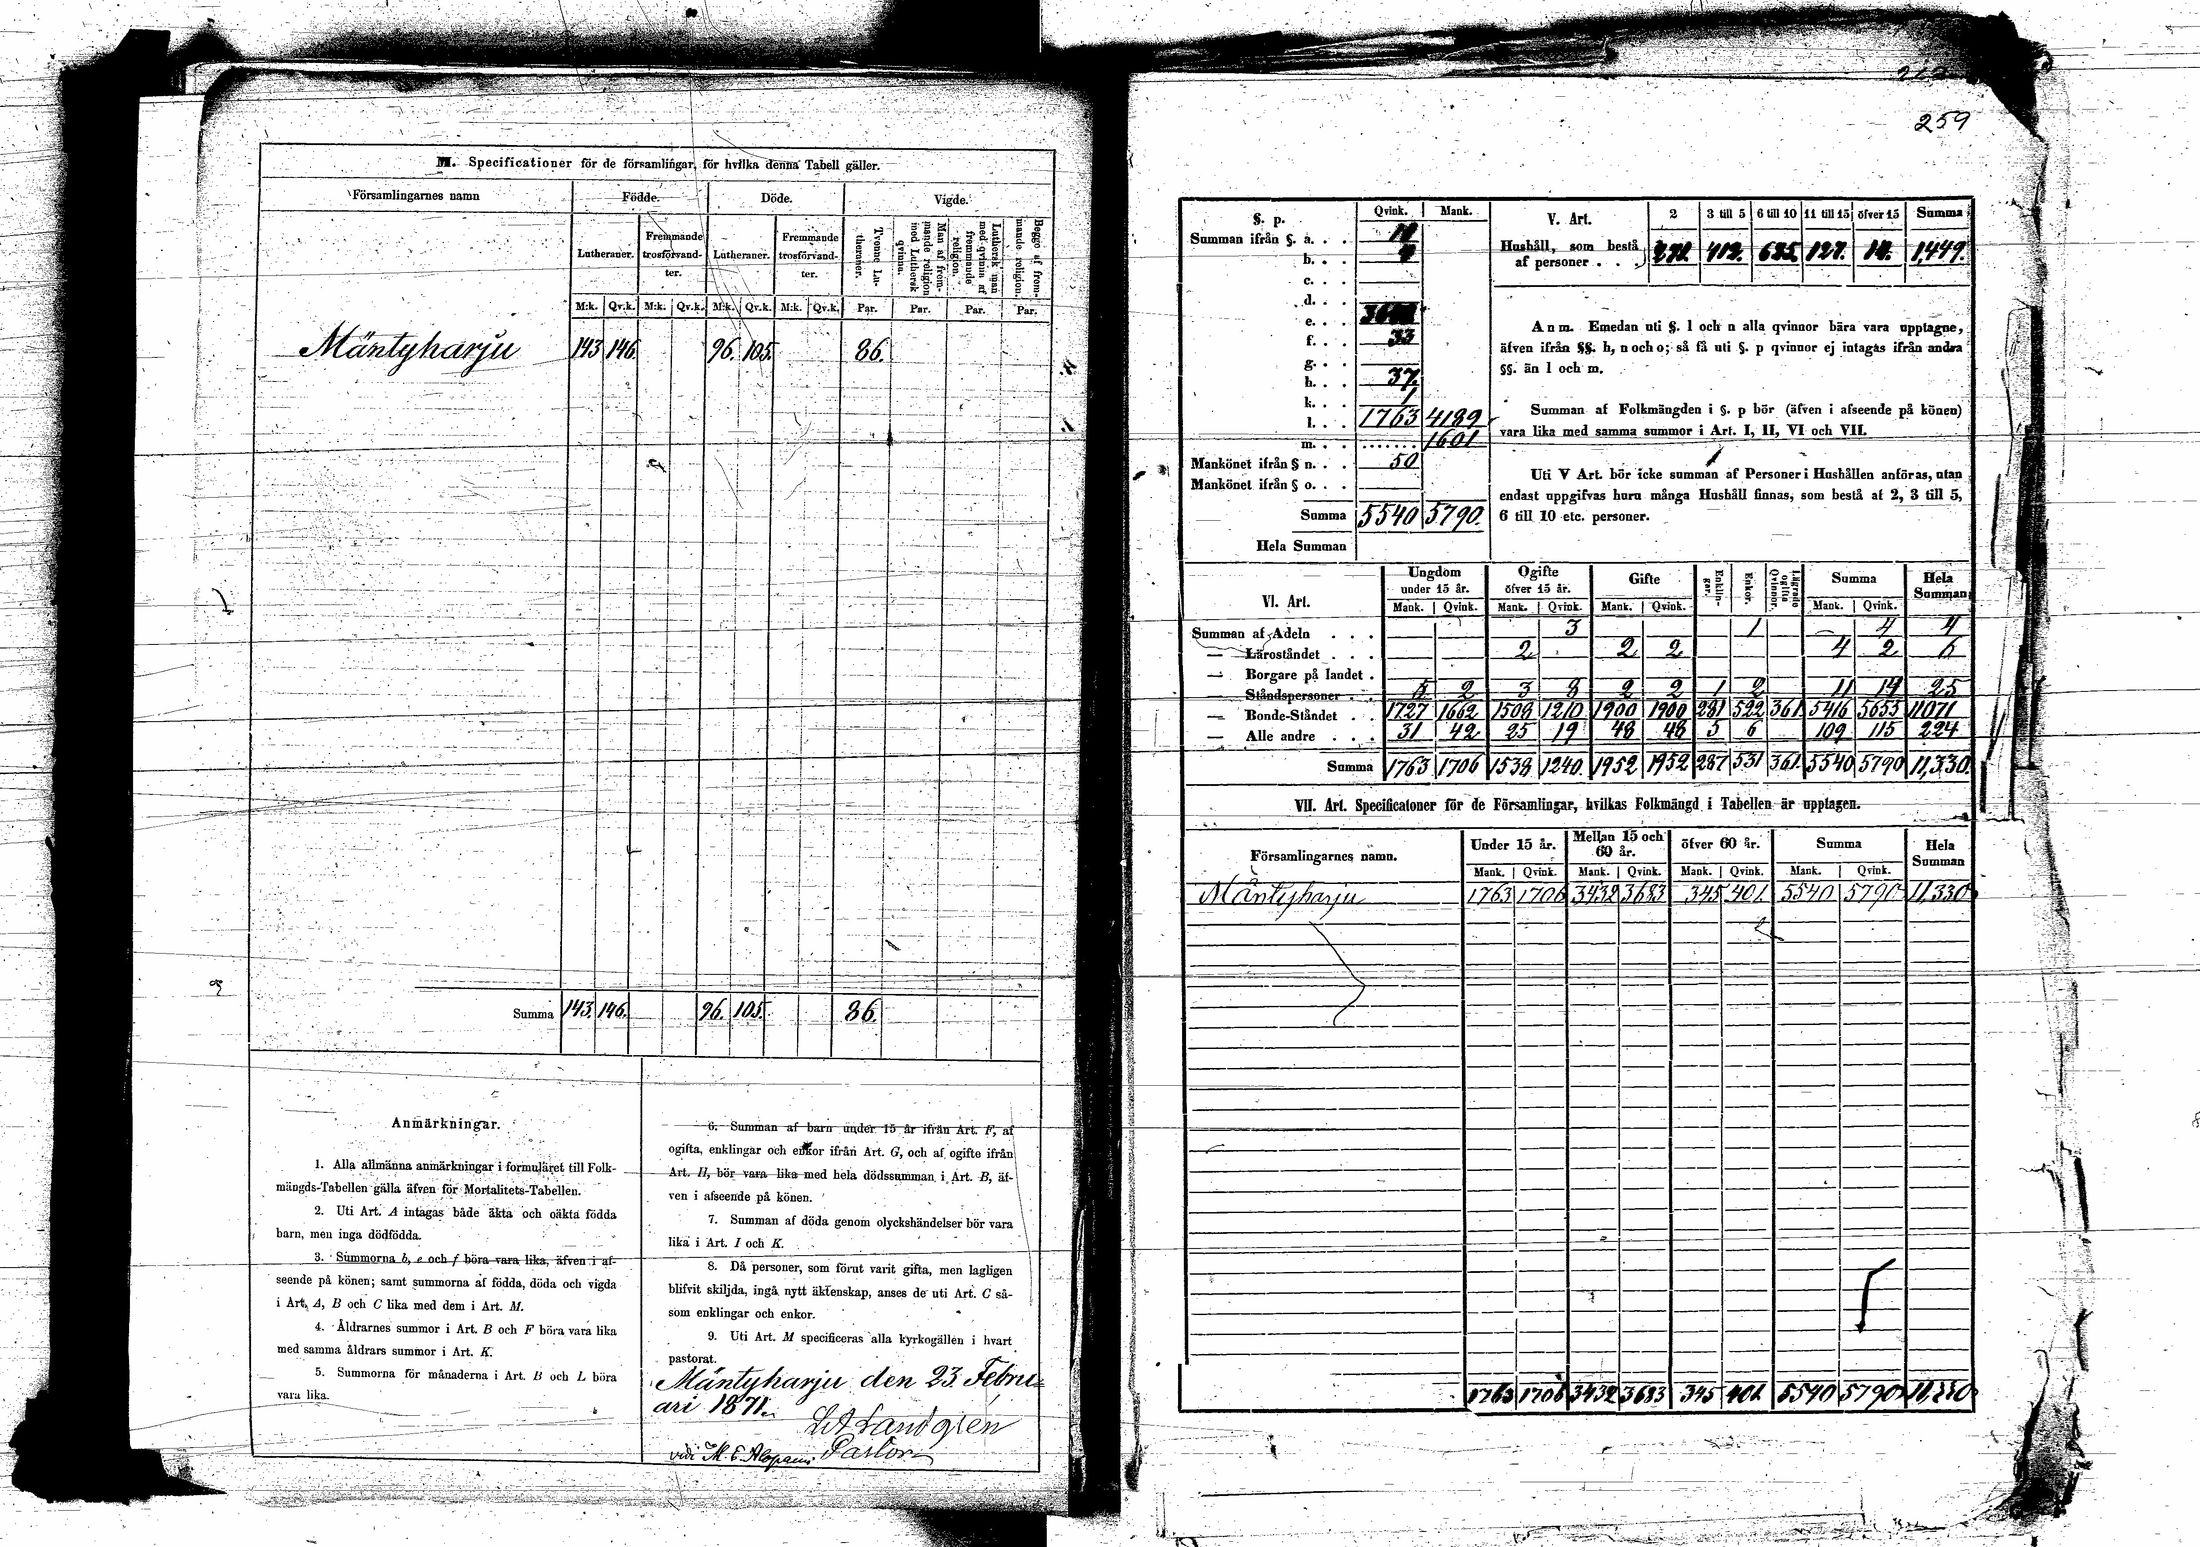 M. Specificationer för de församlingar, för hvilka denna Tabell gäller.
Församlingarnes namn Födde. Döde. Vigde.
Lutheraner. Fremmande trosförvandter. Lutheraner. Fremmande trosförvandter. Tvenne Lutheraner. Man af fremmande religion med Luthersk qvinna. Luthersk man med qvinna af fremmande religion. Begge af fremmande religion.
M:k. Qv.k. M:k. Qv.k. M:k. Qv.k. M:k. Qv.k. Par. Par. Par. Par.
Mäntyharju 143 146. 96. 105. 86.
Summa 143. 146. 96. 105. 86.
Anmärkningar.
1. Alla allmänna anmärkningar i formuläret till Folk-
mängds-Tabellen gälla äfven för Mortalitets-Tabellen.
2. Uti Art. A intagas både äkta och oäkta födda
barn, men inga dödfödda.
3. Summorna b, e och f böra vara lika, äfven i af-
seende på könen; samt summorna af födda, döda och vigda
i Art. A, B och C lika med dem i Art. M.
4. Åldrarnes summor i Art. B och F böra vara lika
med samma åldrars summor i Art. K.
5. Summorna för månaderna i Art. B och L böra
vara lika.
6. Summan af barn under 15 år ifrån Art. F, af
ogifta, enklingar och enkor ifrån Art. G, och af ogifte ifrån
Art. H, bör vara lika med hela dödssumman i Art. B, äf-
ven i afseende på könen.
7. Summan af döda genom olyckshändelser bör vara
lika i Art. I och K.
8. Då personer, som förut varit gifta, men lagligen
blifvit skiljda, ingå nytt äktenskap, anses de uti Art. C så-
som enklingar och enkor.
9. Uti Art. M specificeras alla kyrkogällen i hvart
pastorat.
Mäntyharju den 23 Febru=
ari 1871.
Landgrén
Pastor
vidi
259
§. p. Qvink. Mank.
Summan ifrån §. a. . .
b. . .
c. . .
d. . .
e. . .
f. . . 33
g. . .
h. . . 37.
k. . . 1
l. . . 1763 4189
m. . . ....... 1601
Mankönet ifrån § n. . . 50
Mankönet ifrån § o. . .
Summa 5540 5790.
Hela Summan
V. Art. 2 3 till 5 6 till 10 11 till 15 öfver 15 Summa
Hushåll, som bestå
af personer . . . 412. 127. 1,449.
Anm. Emedan uti §. l och n alla qvinnor bära vara upptagne,
äfven ifrån §§. h, n och o; så få uti §. p qvinnor ej intagas ifrån andra
§§. än l och m.
Summan af Folkmängden i §. p bör (äfven i afseende på könen)
vara lika med samma summor i Art. I, II, VI och VII.
Uti V Art. bör icke summan af Personer i Hushållen anföras, utan
endast uppgifvas huru många Hushåll finnas, som bestå af 2, 3 till 5,
6 till 10 etc. personer.
VI. Art. Ungdom under 15 år. Ogifte öfver 15 år. Gifte Enklingar. Enkor. Lägrade ogifta Qvinnor. Summa Hela Summan
Mank. Qvink. Mank. Qvink. Mank. Qvink. Mank. Qvink.
Summan af Adeln . . . 3 1 4 4
— Läroståndet . . . 2 2 2 4 2 6
— Borgare på landet .
— Ståndspersoner . . 5 2 3 8 2 2 1 2 11 14 25
— Bonde-Ståndet . . 1727 1662 1508 1210 1900 1900 281 522 361 5416 5655 11071
— Alle andre . . . 31 42 25 19 48 48 5 6 109 115 224
Summa 1763 1706 1538 1240. 1952 1952 287 531 361. 5540 5790 11,330.
VII. Art. Specificatoner för de Församlingar, hvilkas Folkmängd i Tabellen är upptagen.
Församlingarnes namn. Under 15 år. Mellan 15 och 60 år. öfver 60 år. Summa Hela Summan
Mank. Qvink. Mank. Qvink. Mank. Qvink. Mank. Qvink.
Mäntyharju 1763 1706 3432 3683 345 401. 5540 5790 11,330
1763 1706 3432 3683 345 401. 5540 5790 11,330